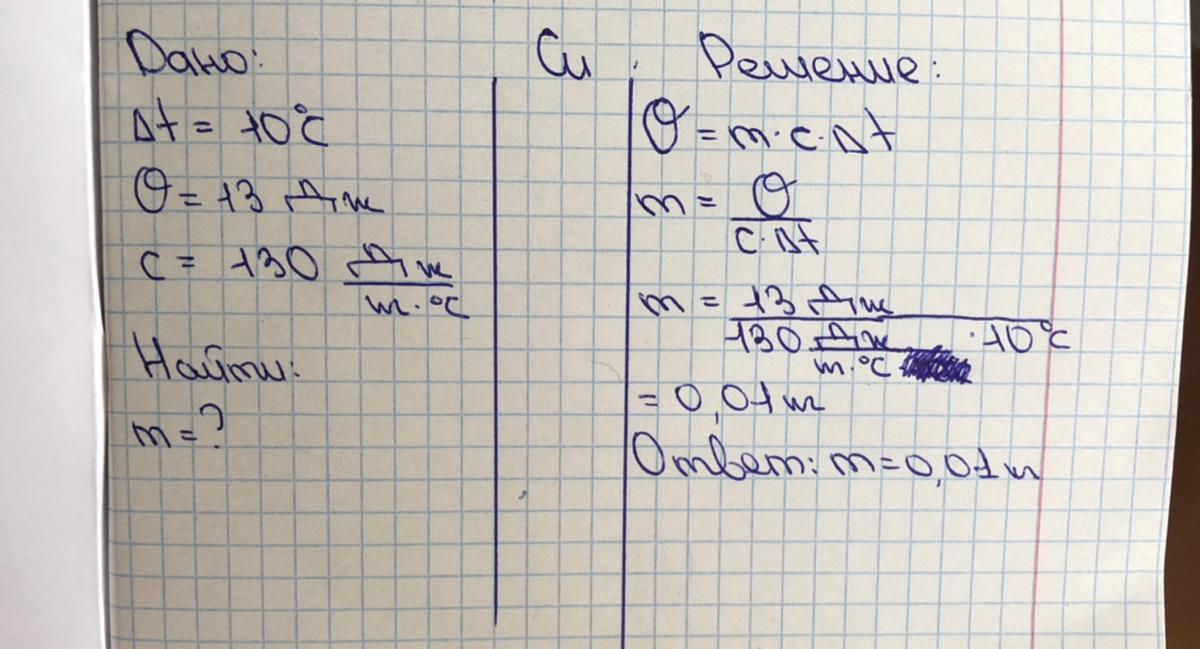 Дано:
Δt = 10°C
Q = 13 Дж
c = 130 Дж
кг·°C
Найти:
m = ?
Си
Решение:
Q = m·c·Δt
m = Q
c·Δt
m = 13 Дж
130 Дж ·10°C
кг·°C
= 0,01 кг
Ответ: m = 0,01 кг